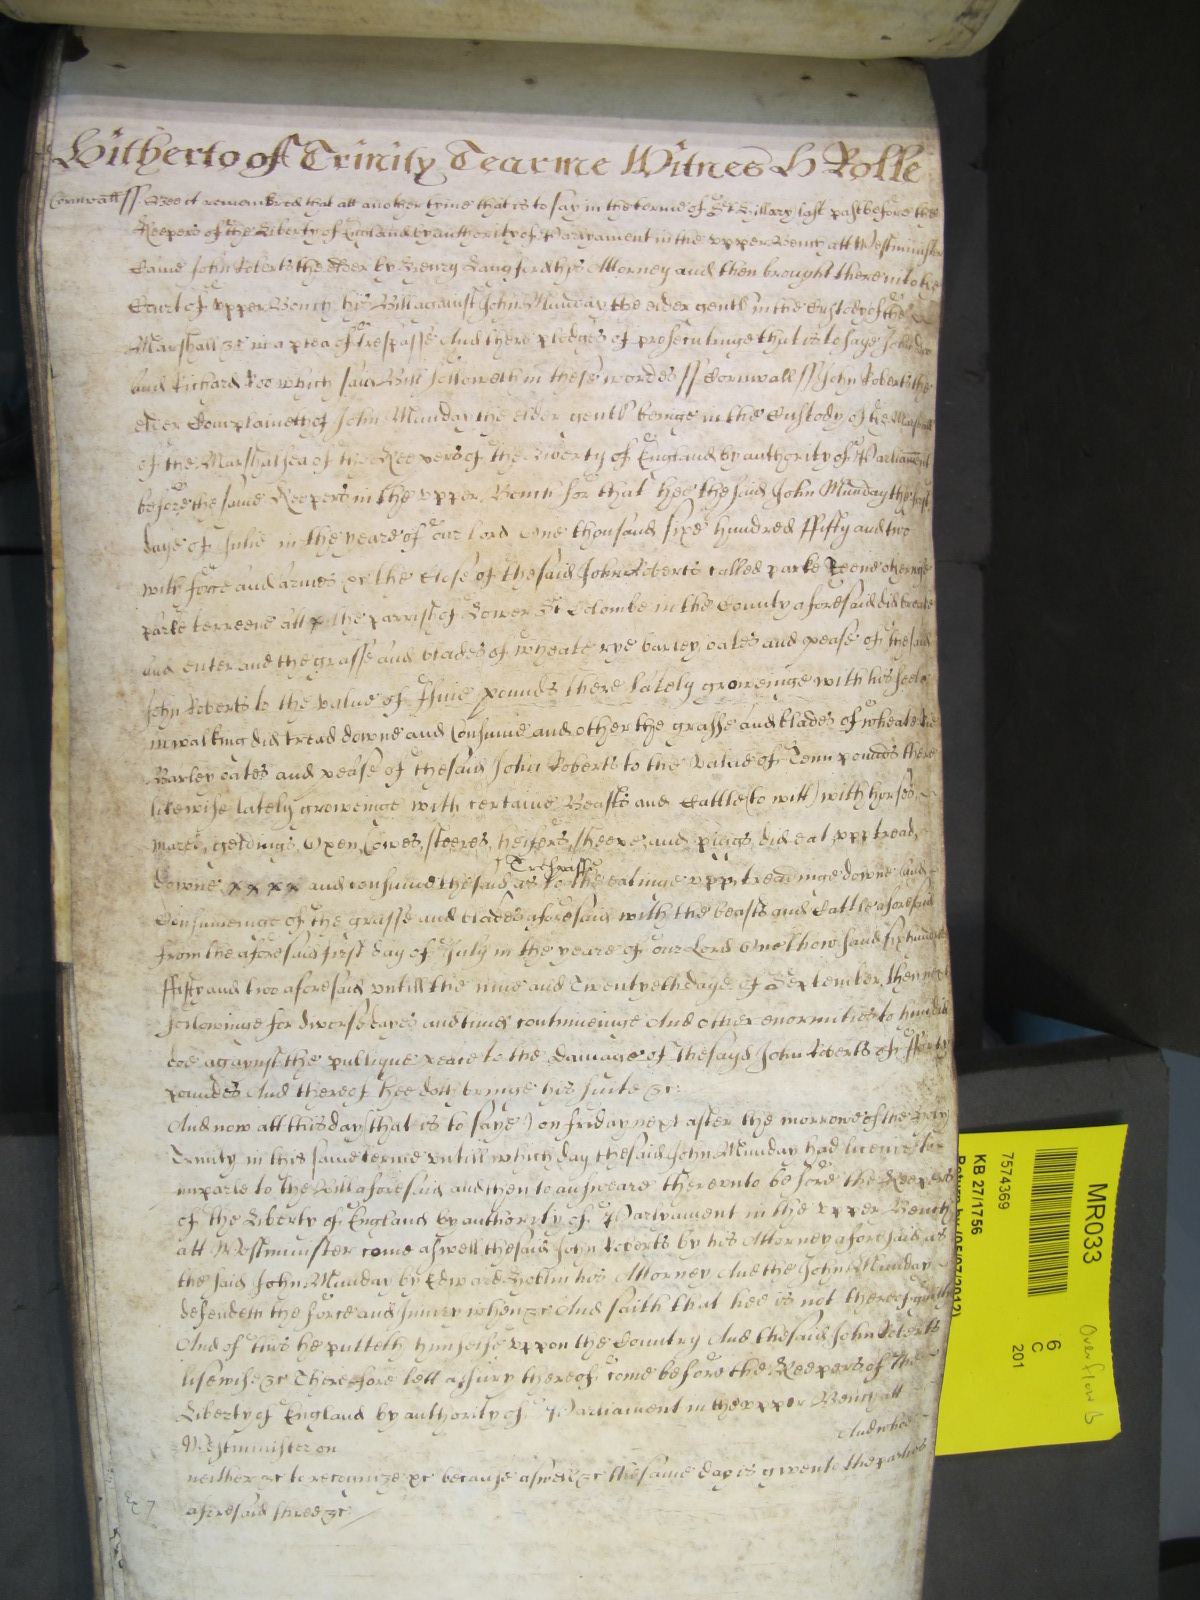 Hitherto of Trinity Tearme Witnes H Rolle
Cornwall ss Bee it remembred that att another tyme that is to say in the terme of St Hillary last past before the
Keepers of the Liberty of England by authority of Parlyament in the upper Bench att Westminster
Came John Roberts the elder by Henry Langford his Attorney and then brought there into the
Court of upper Bench his Bill against John Munday the elder gentl in the Custody of the
Marshall &c in a plea of Trespasse And there pledges of prosecutinge that is to saye John Doo
and Richard Roo which said Bill followeth in these wordes ss Cornwall ss John Roberts the
elder Complaineth of John Munday the elder gentl beinge in the Custody of the Marshall
of the Marshalsea of the Keepers of the liberty of England by authority of Parliament
before the same Keepers in the upper Bench for that hee the said John Munday the first
daye of Julie in the yeare of our Lord One thousand sixe hundred ffifty and two
with force and armes &c the Close of the said John Roberts called parke otherwise
parke terreene att the parrish of Lower St Colombe in the County aforesaid did breake
and enter and the grasse and blades of wheate rye barley oates and pease of the said
John Roberts to the value of ffive pounds there lately groweinge with his feete
in walking did tread downe and Consume and other the grasse and blades of wheate rie
Barley oates and pease of the said John Roberts to the value of Tenn pounds there
likewise lately groweinge with certaine Beasts and Cattle (to witt) with horses,
mares, geldings, Oxen, Cowes, steeres, heifers, sheepe, and piggs did eat upp tread,
downe x x x x and consume the said Trespasse as to the eatinge upp treadinge downe and
Consumeinge of the grasse and blades aforesaid with the beasts and Cattle aforesaid
from the aforesaid first day of July in the yeare of our Lord One thowsand six hundred
ffifty and two aforesaid untill the nine and Twentyeth daye of September then next
followinge for diverse dayes and times continueinge And other enormities to him did
doe against the publique peace to the damage of the sayd John Roberts of fforty
poundes And thereof hee doth bringe his suite &c:
And now att this day (that is to saye) on friday next after the morrowe of the holy
Trinity in this same terme untill which day the said John Munday had licence to
imparle to the Bill aforesaid and then to answeare thereunto before the Keepers
of the Liberty of England by authority of Parlyament in the upper Bench
att Westminster come aswell the said John Roberts by his Attorney aforesaid as
the said John Munday by Edward Hoblin his Attorney And the John Munday
defendeth the force and Injury when &c And saith that hee is not thereof guilty
And of this he putteth himselfe uppon the Country And the said John Roberts
likewise &c Therefore lett a Jury thereof come before the Keepers of the
Liberty of England by authority of Parliament in the upper Bench att
Westminster on And whoe
neither &c to recognize &c because aswell &c the same day is given to the parties
aforesaid there &c
MR033
7574369
KB 27/1756
6
C
201
Overflow B